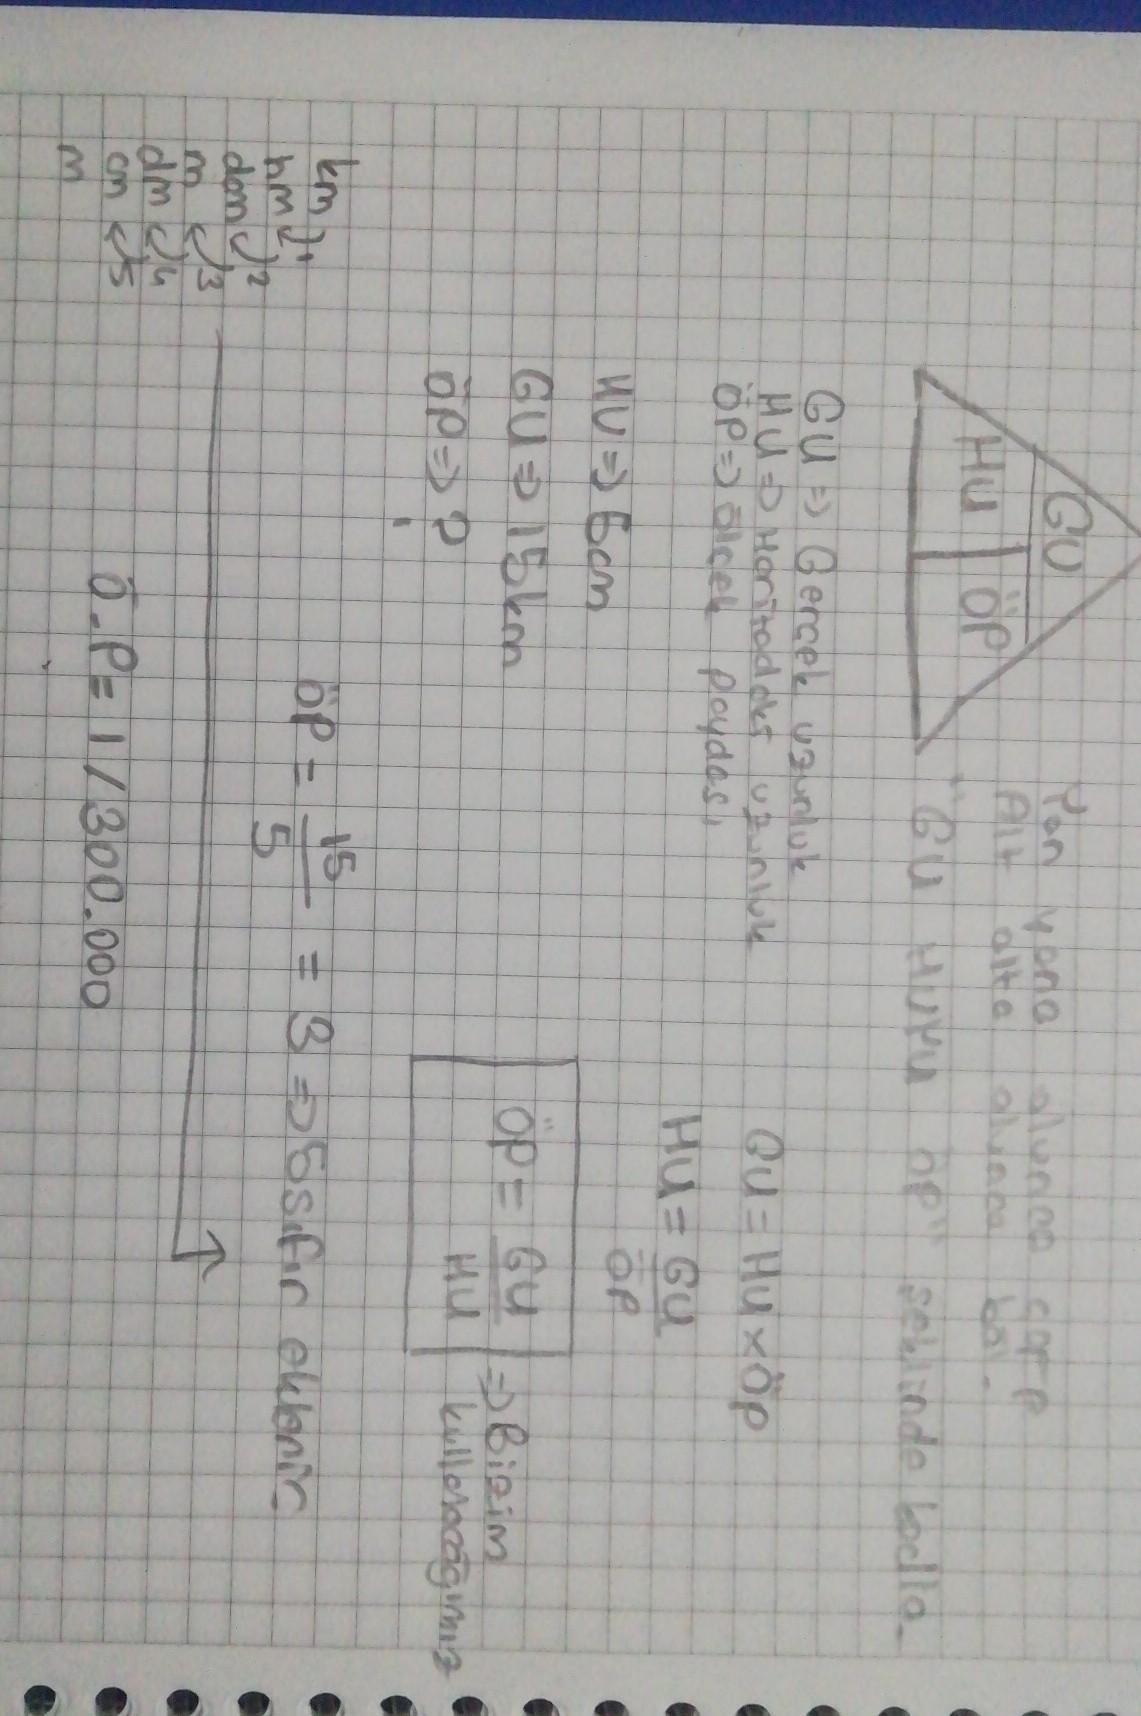 GU
HU ÖP
Yan yana olunca çarp
Alt alta olunca böl.
"GU HUYu ÖP" şeklinde kodla.
GU => Gerçek uzunluk
HU => Haritadaki uzunluk
ÖP => ölçek paydası
GU = HU x ÖP
HU = GU
ÖP
HU => 5cm
GU => 15km
ÖP => ?
ÖP = GU => Bizim
HU kullanacağımız
km
hm 1
dam 2
m 3
dm 4
cm 5
m
ÖP = 15 = 3 => 5 sıfır eklenir
5
Ö.P = 1/300.000